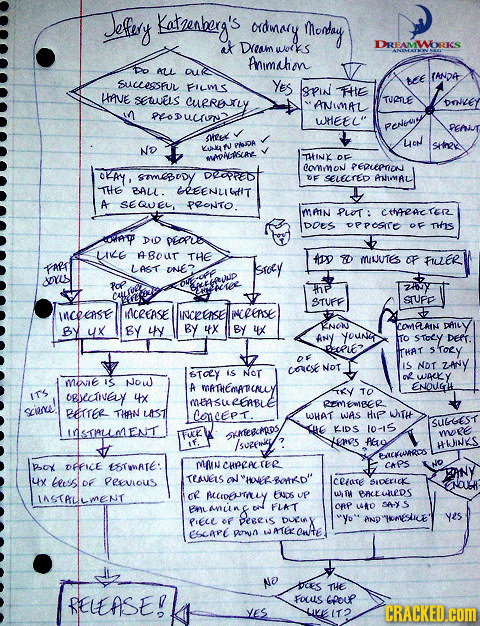 Jeffery Katzenberg's ordinary Monday
at Dreamworks
Animation
DREAMWORKS
ANIMATION SKG
DO ALL OUR
SUCCESSFUL FILMS
HAVE SEQUELS CURRENTLY
IN PRODUCTION?
YES
NO
SHREK ✓
KUNG FU PANDA ✓
MADAGASCAR ✓
SPIN THE
"ANIMAL
WHEEL"
BEE
PANDA
TURTLE
DONKEY
PENGUIN
PEANUT
LION
SHARK
OKAY, SOMEBODY DROPPED
THE BALL. GREENLIGHT
A SEQUEL, PRONTO.
THINK OF
COMMON PERCEPTION
OF SELECTED ANIMAL
MAIN PLOT: CHARACTER
DOES OPPOSITE OF THIS
WHAT DID PEOPLE
LIKE ABOUT THE
LAST ONE?
FART
JOKES
POP
CULTURE
REFERENCES
ONE-OFF
BACKGROUND
CHARACTER
STORY
ADD 80 MINUTES OF FILLER
HIP
STUFF
ZANY
STUFF
INCREASE
BY 4X
INCREASE
BY 4X
INCREASE
BY 4X
INCREASE
BY 4X
KNOW
ANY YOUNG
PEOPLE?
OF
COURSE NOT
COMPLAIN DAILY
TO STORY DEPT.
THAT STORY
IS NOT ZANY
OR WACKY
ENOUGH
IT'S
SCIENCE!
MOVIE IS NOW
OBJECTIVELY 4X
BETTER THAN LAST
INSTALLMENT
STORY IS NOT
A MATHEMATICALLY
MEASUREABLE
CONCEPT.
TRY TO
REMEMBER
WHAT WAS HIP WITH
THE KIDS 10-15
YEARS AGO
FUCK
IT.
SKATEBOARDS
/SURFING?
BACKWARDS
CAPS
SUGGEST
MORE
HIJINKS
NO
ZANY
ENOUGH?
YES
BOX OFFICE ESTIMATE:
4X GROSS OF PREVIOUS
INSTALLMENT
MAIN CHARACTER
TRAVELS ON "HOVER-BOARD"
OR ACCIDENTALLY ENDS UP
BALANCING ON FLAT
PIECE OF DEBRIS DURING
ESCAPE DOWN WATER CHUTE.
CREATE SIDEKICK
WITH BACKWARDS
CAP WHO SAYS
"YO" AND "HOMESLICE"
DOES THE
FOCUS GROUP
LIKE IT?
NO
YES
RELEASE!
CRACKED.COM